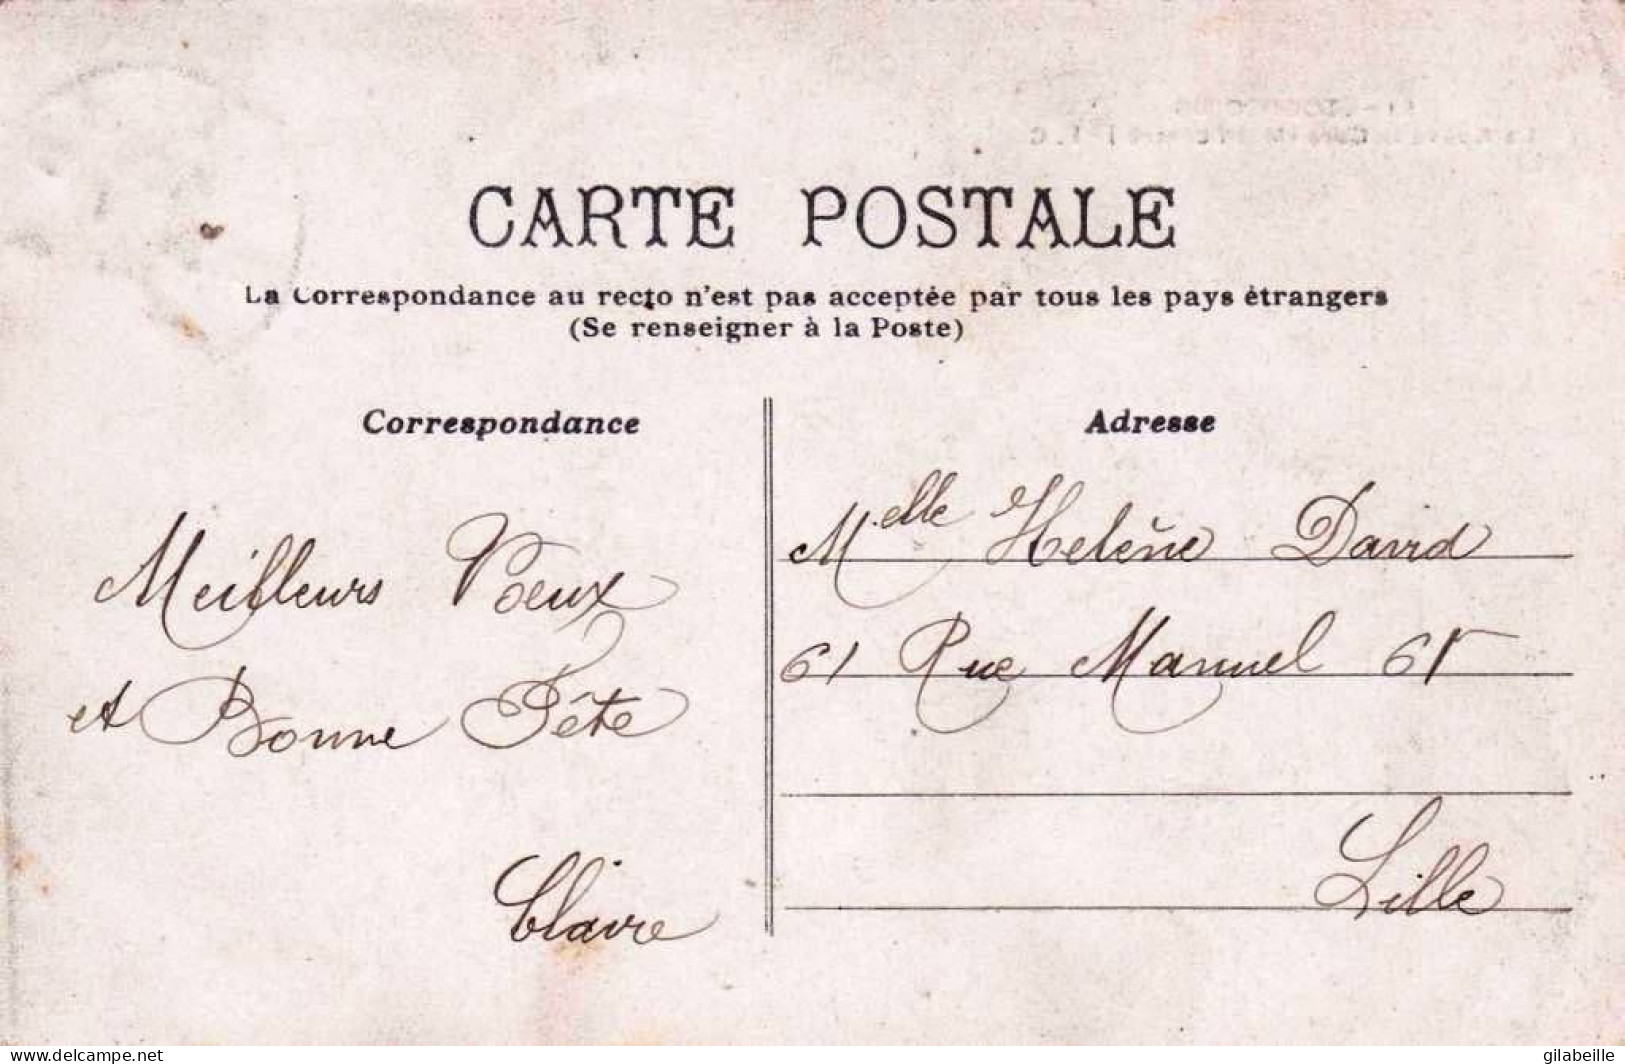 CARTE POSTALE
La Correspondance au recto n'est pas acceptée par tous les pays étrangers
(Se renseigner à la Poste)
Correspondance
Meilleurs Voeux
et Bonne Fête
Claire
Adresse
Melle Helène David
61 Rue Manuel 61
Lille
www.delcampe.net
gilabeille